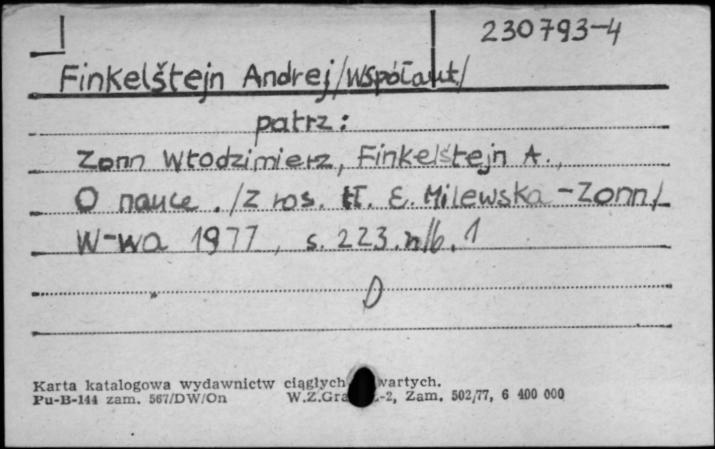 230793-4
Finkelštejn Andrej/Współaut/
patrz:
Zonn Włodzimierz, Finkelštejn A.,
O nauce. /Z ros. tł. E. Milewska-Zonn/
W-wa 1977, s. 223. nlb. 1
D
Karta katalogowa wydawnictw ciągłych wartych.
Pu-B-144 zam. 567/DW/On W.Z.Gra -2, Zam. 502/77, 6 400 000